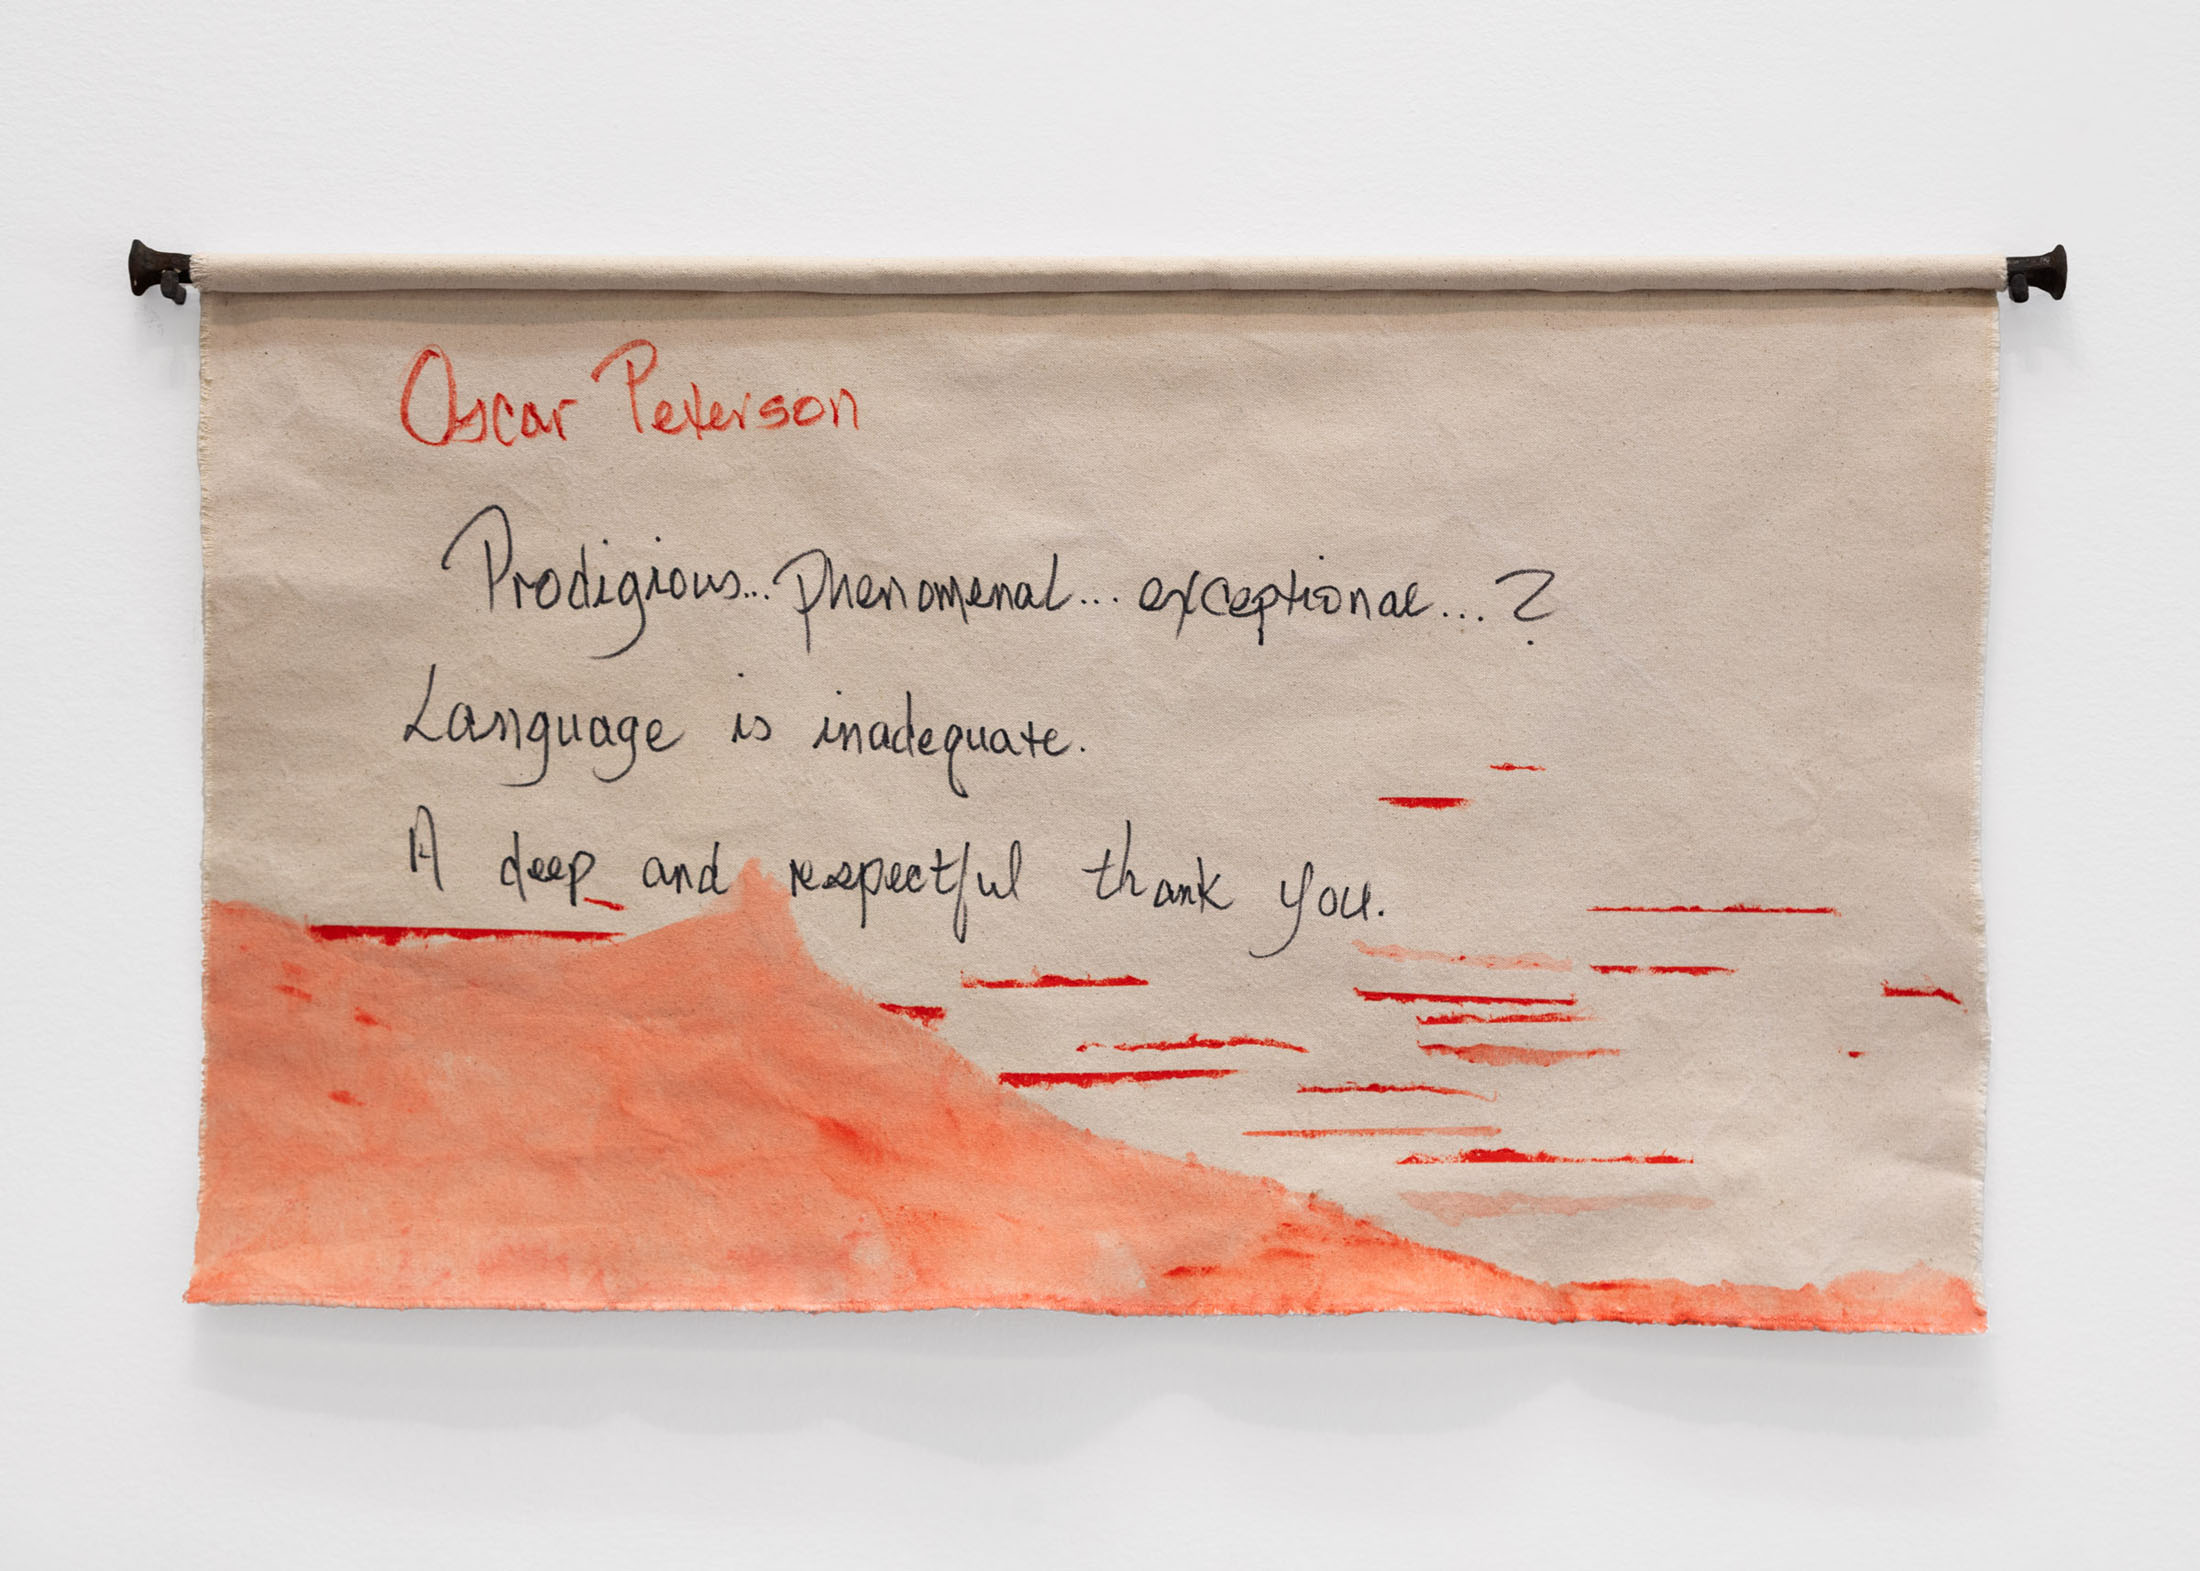 Oscar Peterson
Prodigious... Phenomenal... exceptional...?
Language is inadequate.
A deep and respectful thank you.